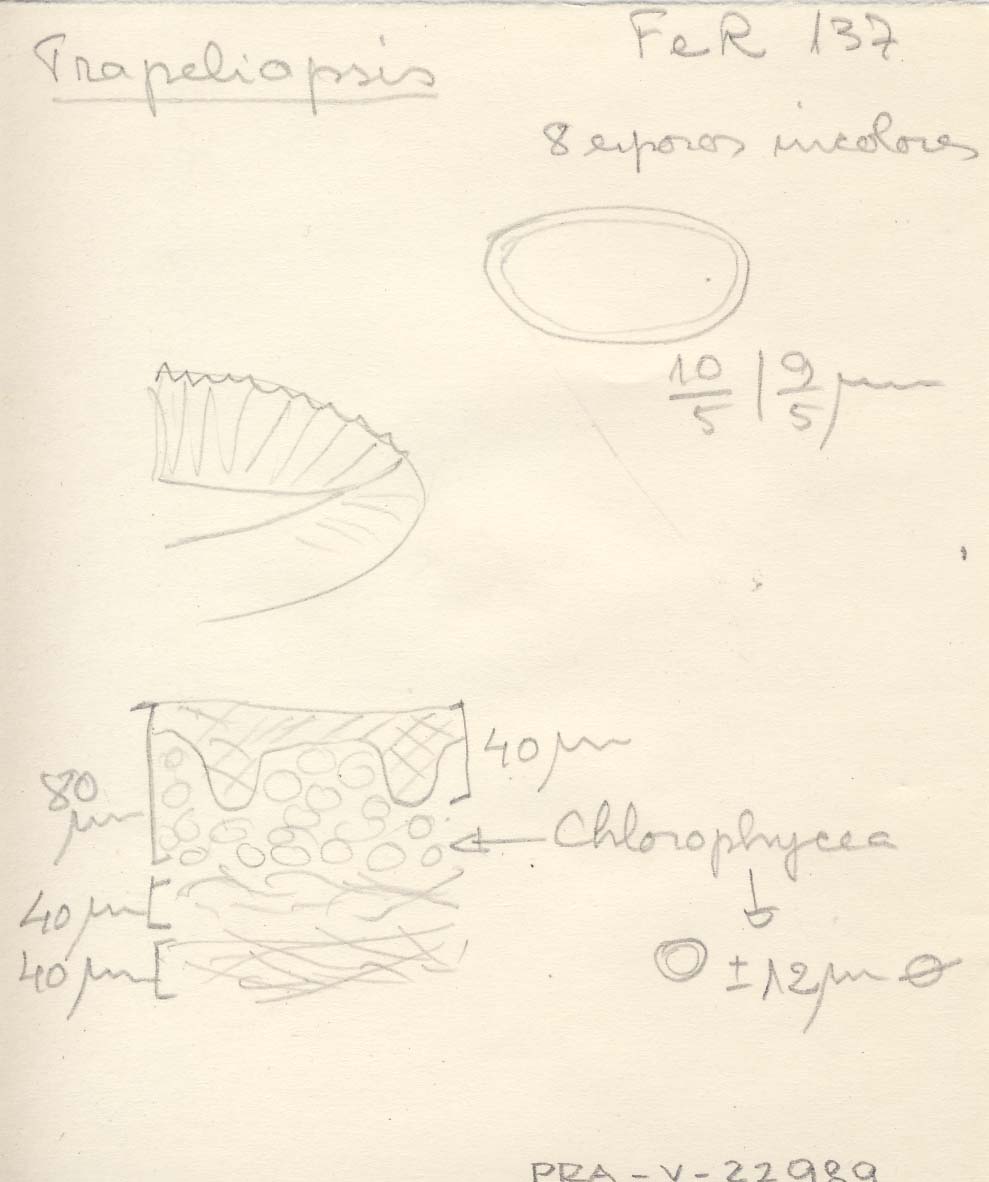 Trapeliopsis
FeR 137
8 esporos incolores
10/5 | 9/5 µm
80 µm
40 µm
Chlorophycea
40 µm
40 µm
± 12 µm ⌀
PRA-V-22989